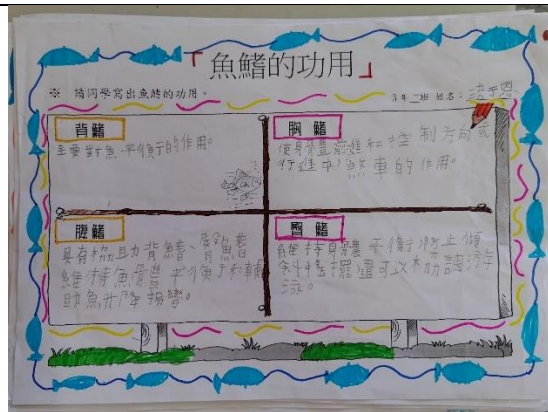 「魚鰭的功用」
※ 請同學寫出魚鰭的功用。
3年二班 姓名：
背鰭
主要對魚平衡的作用。
胸鰭
使身體前進和控制方向或
行進中煞車的作用。
腹鰭
具有協助背鰭、臀魚鰭
維持魚體平衡和輔
助魚升降拐彎。
臀鰭
維持身體平衡防止傾
斜搖擺還可以協調游
泳。